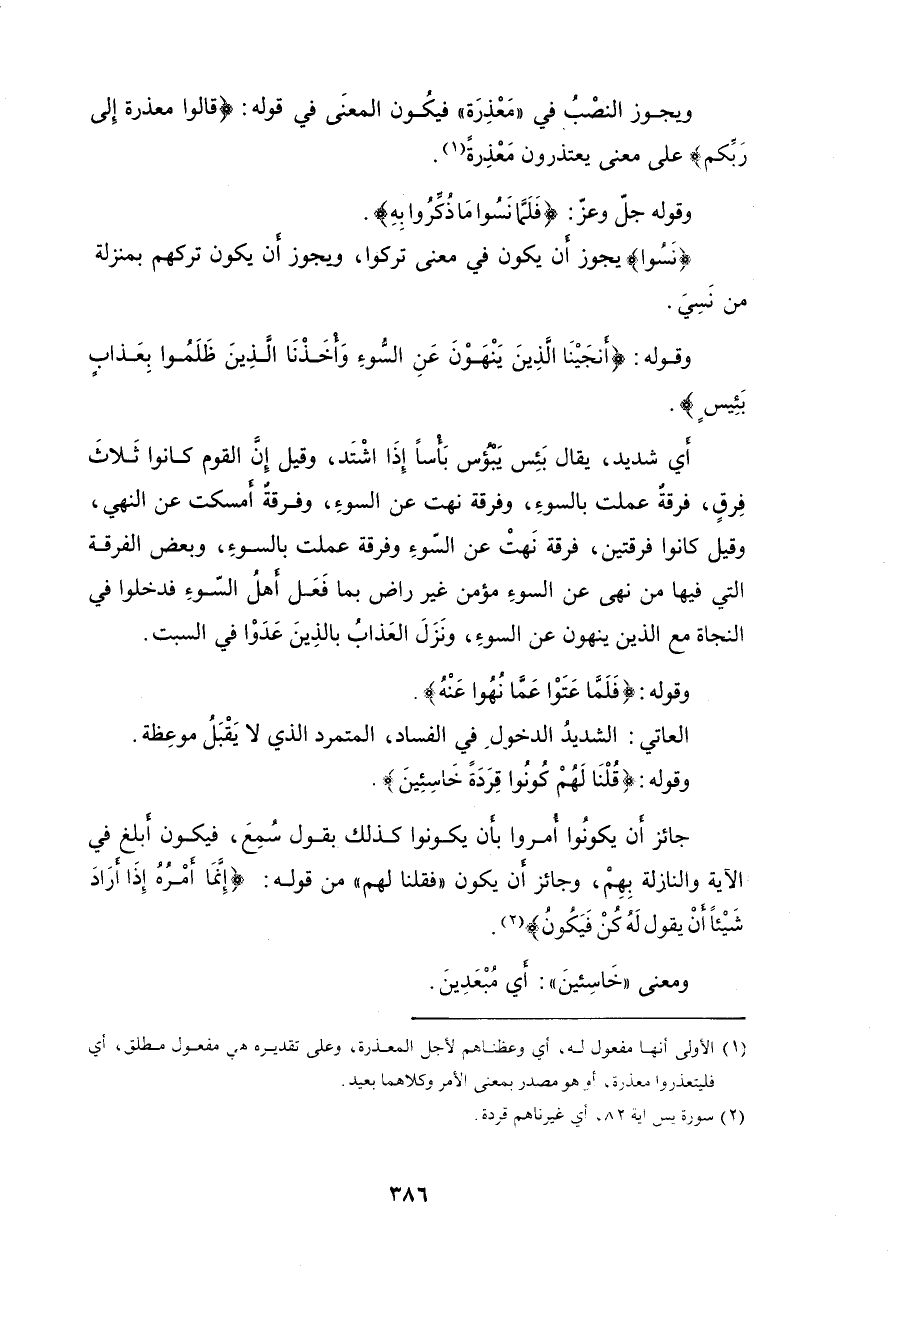 ويجوز النصْبُ في «مَعْذِرَة» فيكُون المعنَى في قوله: ﴿قالوا معذرة إِلى
رَبِّكم﴾ على معنى يعتذرون مَعْذِرةً(١).
وقوله جلّ وعزّ: ﴿فَلَمَّا نَسُوا مَا ذُكِّرُوا بِهِ﴾.
﴿نَسُوا﴾ يجوز أَن يكون في معنى تركوا، ويجوز أَن يكون تركهم بمنزلة
من نَسِيَ.
وقوله: ﴿أَنجَيْنَا الَّذِينَ يَنْهَوْنَ عَنِ السُّوءِ وَأَخَذْنَا الَّذِينَ ظَلَمُوا بِعَذابٍ
بَئِيسٍ﴾.
أَي شديد، يقال بَئِس يَبْؤُس بَأْساً إِذَا اشْتَد، وقيل إِنَّ القوم كانوا ثَلاثَ
فِرقٍ، فرقةٌ عملت بالسوءِ، وفرقة نهت عن السوءِ، وفرقةٌ أَمسكت عن النهي،
وقيل كانوا فرقتين، فرقة نَهتْ عن السّوءِ وفرقة عملت بالسوءِ، وبعض الفرقة
التي فيها من نهى عن السوءِ مؤمن غير راض بما فَعَل أَهلُ السّوءِ فدخلوا في
النجاة مع الذين ينهون عن السوءِ، ونَزَلَ العَذابُ بالذِينَ عَدَوْا في السبت.
وقوله: ﴿فَلَمَّا عَتَوْا عَمَّا نُهُوا عَنْهُ﴾.
العاتي: الشديدُ الدخولِ في الفساد، المتمرد الذي لا يَقْبَلُ موعِظة.
وقوله: ﴿قُلْنَا لَهُمْ كُونُوا قِرَدَةً خَاسِئِينَ﴾.
جائز أَن يكونُوا أُمروا بأَن يكونوا كذلك بقول سُمِعَ، فيكون أَبلغ في
الآية والنازلة بِهِمْ، وجائز أَن يكون «فقلنا لهم» من قوله: ﴿إِنَّمَا أَمْرُهُ إِذَا أَرَادَ
شَيْئاً أَنْ يقول لَهُ كُنْ فَيَكُونُ﴾(٢).
ومعنى «خَاسِئينَ»: أَي مُبْعَدِينَ.
(١) الأولى أنها مفعول له، أي وعظناهم لأجل المعذرة، وعلى تقديره هي مفعول مطلق، أي
فليتعذروا معذرة، أو هو مصدر بمعنى الأمر وكلاهما بعيد.
(٢) سورة يس اية ٨٢، أي غيرناهم قردة.
٣٨٦